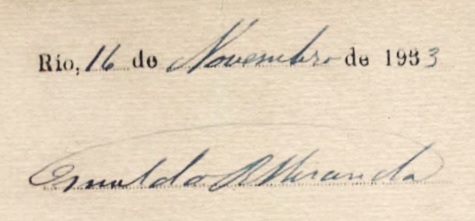 Rio, 16 de Novembro de 1933
Esnaldo A Miranda